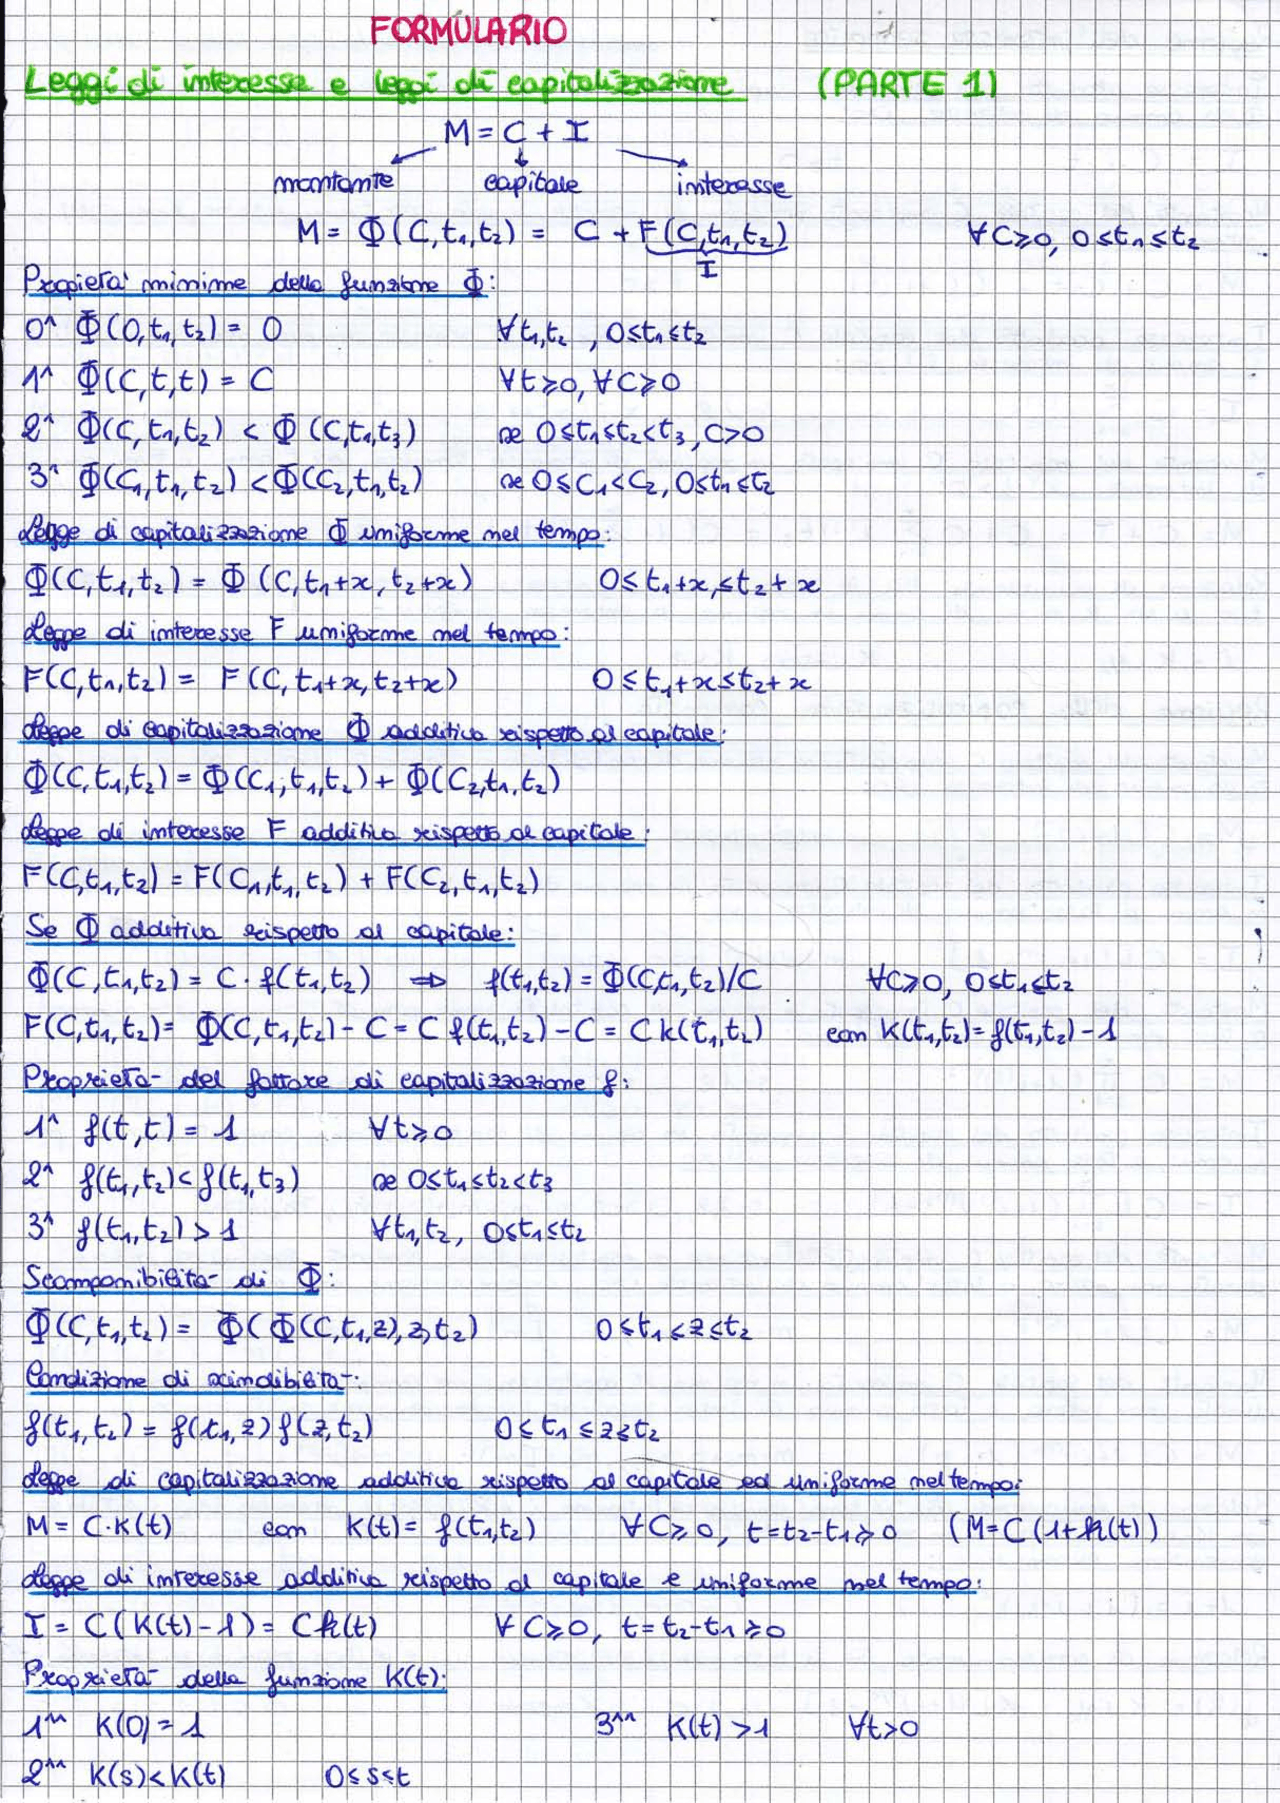 FORMULARIO
Leggi di interesse e leggi di capitalizzazione (PARTE 1)
M = C + I
montante capitale interesse
M = Φ(C,t₁,t₂) = C + F(C,t₁,t₂) ∀C⩾0, 0⩽t₁⩽t₂
I
Proprietà minime della funzione Φ:
0^ Φ(0,t₁,t₂) = 0 ∀t₁,t₂ , 0⩽t₁⩽t₂
1^ Φ(C,t,t) = C ∀t⩾0, ∀C⩾0
2^ Φ(C,t₁,t₂) < Φ(C,t₁,t₃) se 0⩽t₁⩽t₂<t₃, C>0
3^ Φ(C₁,t₁,t₂) < Φ(C₂,t₁,t₂) se 0⩽C₁<C₂, 0⩽t₁⩽t₂
Legge di capitalizzazione Φ uniforme nel tempo:
Φ(C,t₁,t₂) = Φ(C,t₁+x,t₂+x) 0⩽t₁+x⩽t₂+x
Legge di interesse F uniforme nel tempo:
F(C,t₁,t₂) = F(C,t₁+x,t₂+x) 0⩽t₁+x⩽t₂+x
Legge di capitalizzazione Φ additiva rispetto al capitale:
Φ(C,t₁,t₂) = Φ(C₁,t₁,t₂) + Φ(C₂,t₁,t₂)
Legge di interesse F additiva rispetto al capitale:
F(C,t₁,t₂) = F(C₁,t₁,t₂) + F(C₂,t₁,t₂)
Se Φ additiva rispetto al capitale:
Φ(C,t₁,t₂) = C·f(t₁,t₂) ⇒ f(t₁,t₂) = Φ(C,t₁,t₂)/C ∀C⩾0, 0⩽t₁⩽t₂
F(C,t₁,t₂) = Φ(C,t₁,t₂) - C = C f(t₁,t₂) - C = C k(t₁,t₂) con k(t₁,t₂) = f(t₁,t₂) - 1
Proprietà del fattore di capitalizzazione f:
1^ f(t,t) = 1 ∀t⩾0
2^ f(t₁,t₂) < f(t₁,t₃) se 0⩽t₁⩽t₂<t₃
3^ f(t₁,t₂) > 1 ∀t₁,t₂, 0⩽t₁⩽t₂
Scomponibilità di Φ:
Φ(C,t₁,t₂) = Φ(Φ(C,t₁,z),z,t₂) 0⩽t₁⩽z⩽t₂
Condizione di scindibilità:
f(t₁,t₂) = f(t₁,z) f(z,t₂) 0⩽t₁⩽z⩽t₂
Legge di capitalizzazione additiva rispetto al capitale ed uniforme nel tempo:
M = C·K(t) con K(t) = f(t₁,t₂) ∀C⩾0, t=t₂-t₁⩾0 (M=C(1+k(t))
Legge di interesse additiva rispetto al capitale e uniforme nel tempo:
I = C(K(t)-1) = Ck(t) ∀C⩾0, t=t₂-t₁⩾0
Proprietà della funzione K(t):
1^^ K(0) = 1 3^^ K(t) > 1 ∀t>0
2^^ K(s) < K(t) 0⩽s⩽t